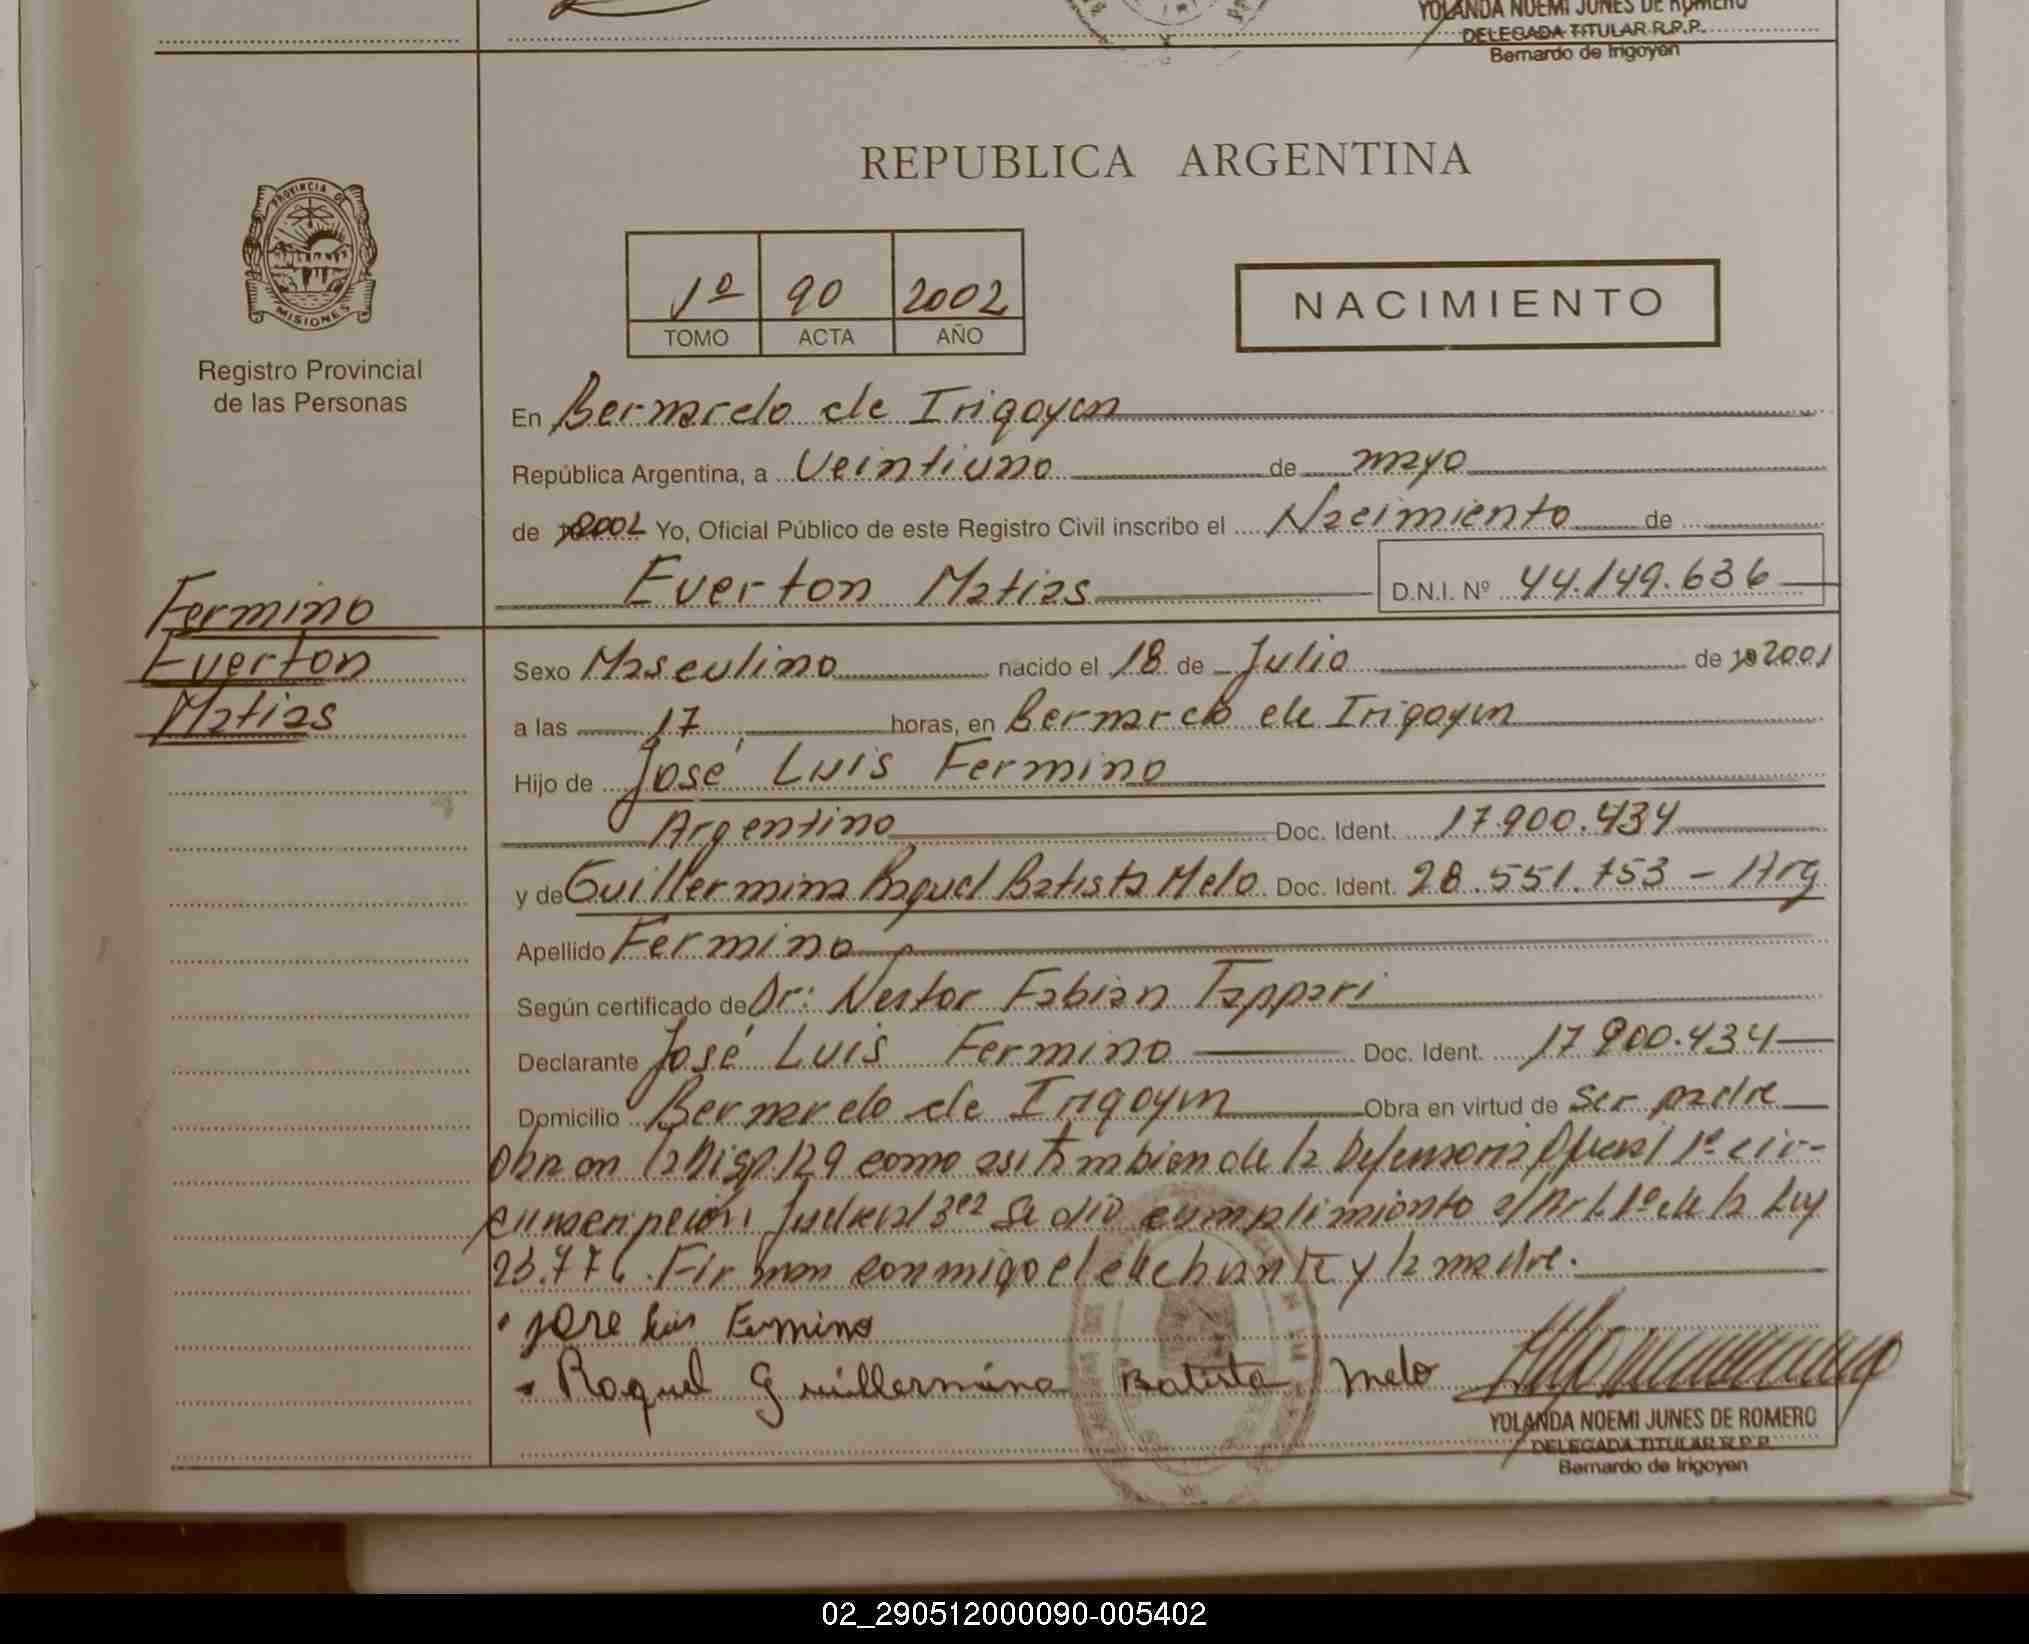 YOLANDA NOEMI JUNES DE ROMERO
DELEGADA TITULAR R.P.P.
Bernardo de Irigoyen
REPUBLICA ARGENTINA
PROVINCIA DE
MISIONES
Registro Provincial
de las Personas
1º 90 2002
TOMO ACTA AÑO
NACIMIENTO
En Bernardo de Irigoyen
República Argentina, a Veintiuno de mayo
de 2002 Yo, Oficial Público de este Registro Civil inscribo el Nacimiento de
Everton Matias D.N.I. Nº 44.149.636
Fermino
Everton
Matias
Sexo Masculino nacido el 18 de Julio de 19 2001
a las 17 horas, en Bernardo de Irigoyen
Hijo de José Luis Fermino
Argentino Doc. Ident. 17.900.434
y de Guillermina Raquel Batista Melo Doc. Ident. 28.551.753 - Arg
Apellido Fermino
Según certificado de Dr: Nestor Fabian Tappari
Declarante José Luis Fermino Doc. Ident. 17.900.434
Domicilio Bernardo de Irigoyen Obra en virtud de Ser padre
Obra en la Disp. 129 como asi tambien de la Defensoria Oficial 1º cir-
cunscripción Judicial Se dió cumplimiento al Art. 1º de la Ley
23.776. Firman conmigo el declarante y la madre.
Jose Luis Fermino
Raquel Guillermina Batista Melo
YOLANDA NOEMI JUNES DE ROMERO
DELEGADA TITULAR R.P.P.
Bernardo de Irigoyen
02_290512000090-005402